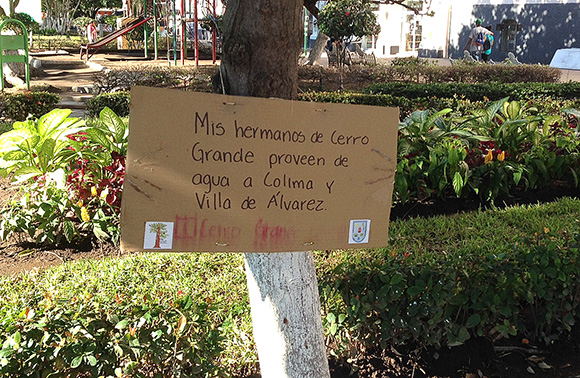 Mis hermanos de Cerro
Grande proveen de
agua a Colima y
Villa de Álvarez.
Cerro Grande